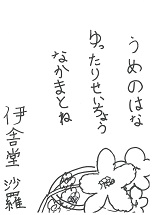 うめのはな
ゆったりせいちょう
なかまとね
伊舎堂 沙羅